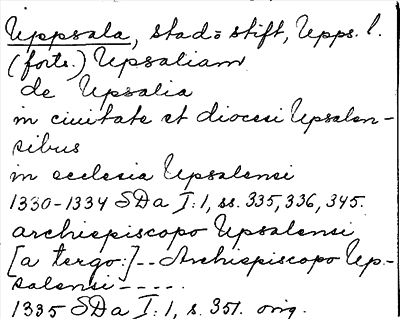 Uppsala, stad o stift, Upps. l.
(forts.) Upsaliam
de Upsalia
in ciuitate et diocesi Upsalen-
sibus
in ecclesia Upsalensi
1330-1334 SDa I:1, ss. 335, 336, 345.
archiepiscopo Upsalensi
[a tergo:] - - Archiepiscopo Up-
salensi - - - - -.
1335 SDa I:1, s. 351. orig.